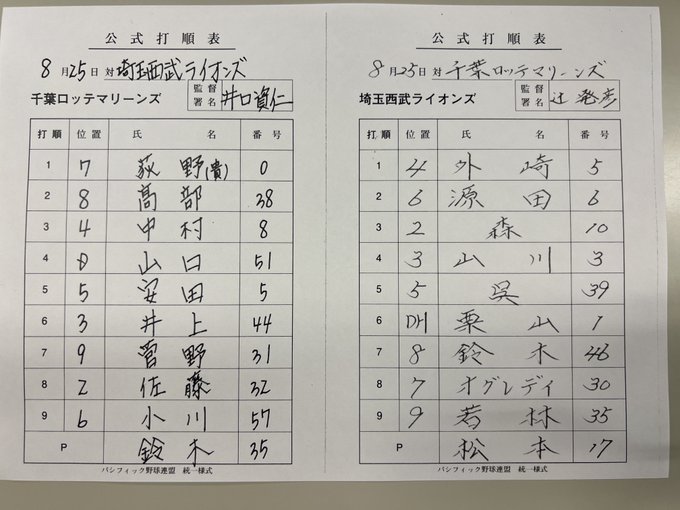 公式打順表
8月25日 対 埼玉西武ライオンズ
千葉ロッテマリーンズ 監督署名 井口資仁
打順 位置 氏名 番号
1 7 荻野(貴) 0
2 8 髙部 38
3 4 中村 8
4 D 山口 51
5 5 安田 5
6 3 井上 44
7 9 菅野 31
8 2 佐藤 32
9 6 小川 57
P 鈴木 35
パシフィック野球連盟 統一様式
公式打順表
8月25日 対 千葉ロッテマリーンズ
埼玉西武ライオンズ 監督署名 辻発彦
打順 位置 氏名 番号
1 4 外崎 5
2 6 源田 6
3 2 森 10
4 3 山川 3
5 5 呉 39
6 DH 栗山 1
7 8 鈴木 46
8 7 オグレディ 30
9 9 若林 35
P 松本 17
パシフィック野球連盟 統一様式